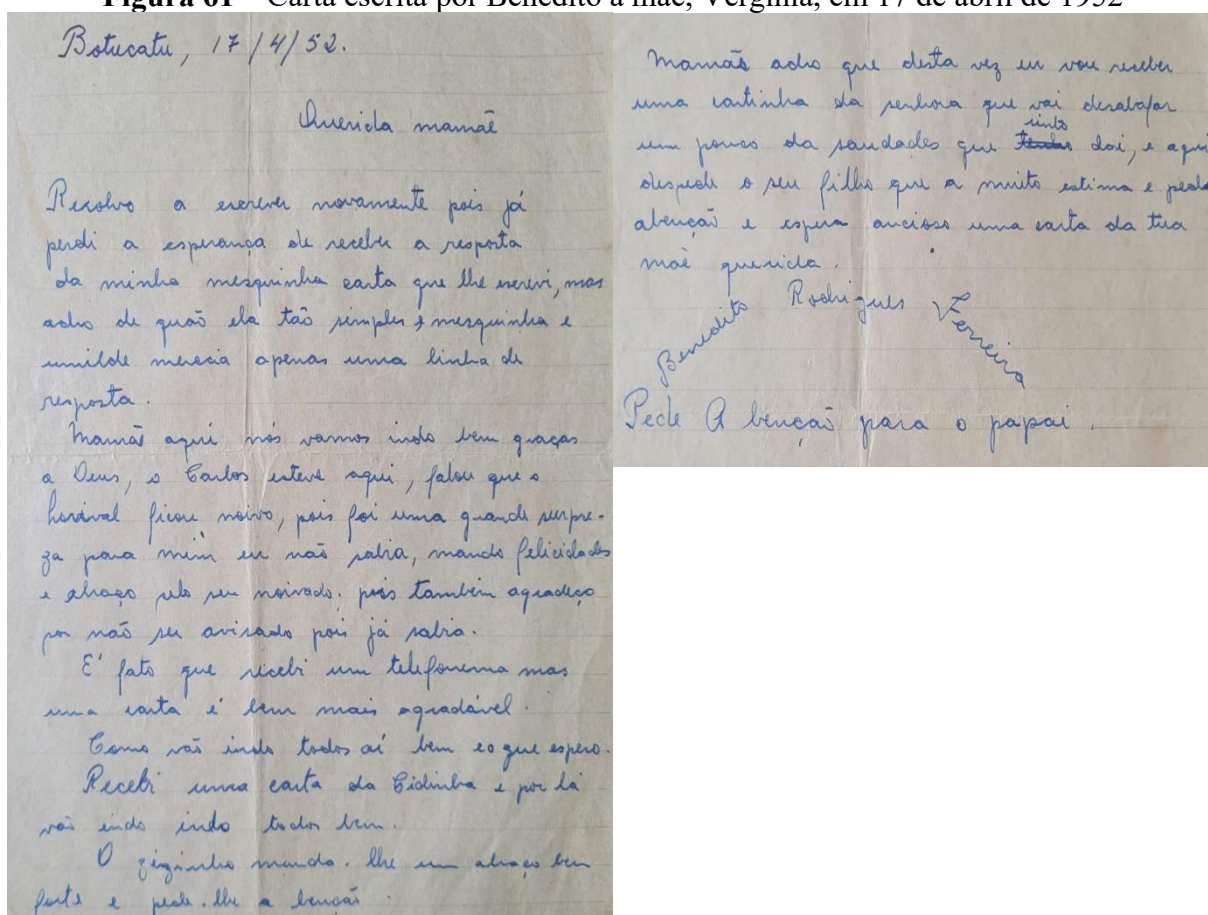 Figura 61 – Carta escrita por Benedito à mãe, Verginia, em 17 de abril de 1952
Botucatu, 17/4/52.
Querida mamãe
Resolvo a escrever novamente pois já
perdi a esperança de receber a resposta
da minha mesquinha carta que lhe escrevi, mas
acho de quão ela tão simples e mesquinha e
umilde merecia apenas uma linha de
resposta.
Mamãe aqui nós vamos indo bem graças
a Deus, o Carlos esteve aqui, falou que o
ficou noivo, pois foi uma grande surpre-
za para mim eu não sabia, mando felicidades
e abraço pelo seu noivado. pois também agradeço
por não ser avisado pois já sabia.
E' fato que recebi um telefonema mas
uma carta é bem mais agradável.
Como vão indo todos aí bem eo que espero.
Recebi uma carta da Cidinha e por lá
vão indo indo todos bem.
O ziginho manda-lhe um abraço bem
forte e pede-lhe a bençaõ.
Mamãe acho que desta vez eu vou receber
uma cartinha da senhora que vai desabafar
sinto
um pouco da saudades que doi, e aqui
despede o seu filho que a muito estima e pede
abençaõ e espera ancioso uma carta da tua
mãe querida.
Benedito Rodrigues Ferreira
Pede A bençaõ para o papai.